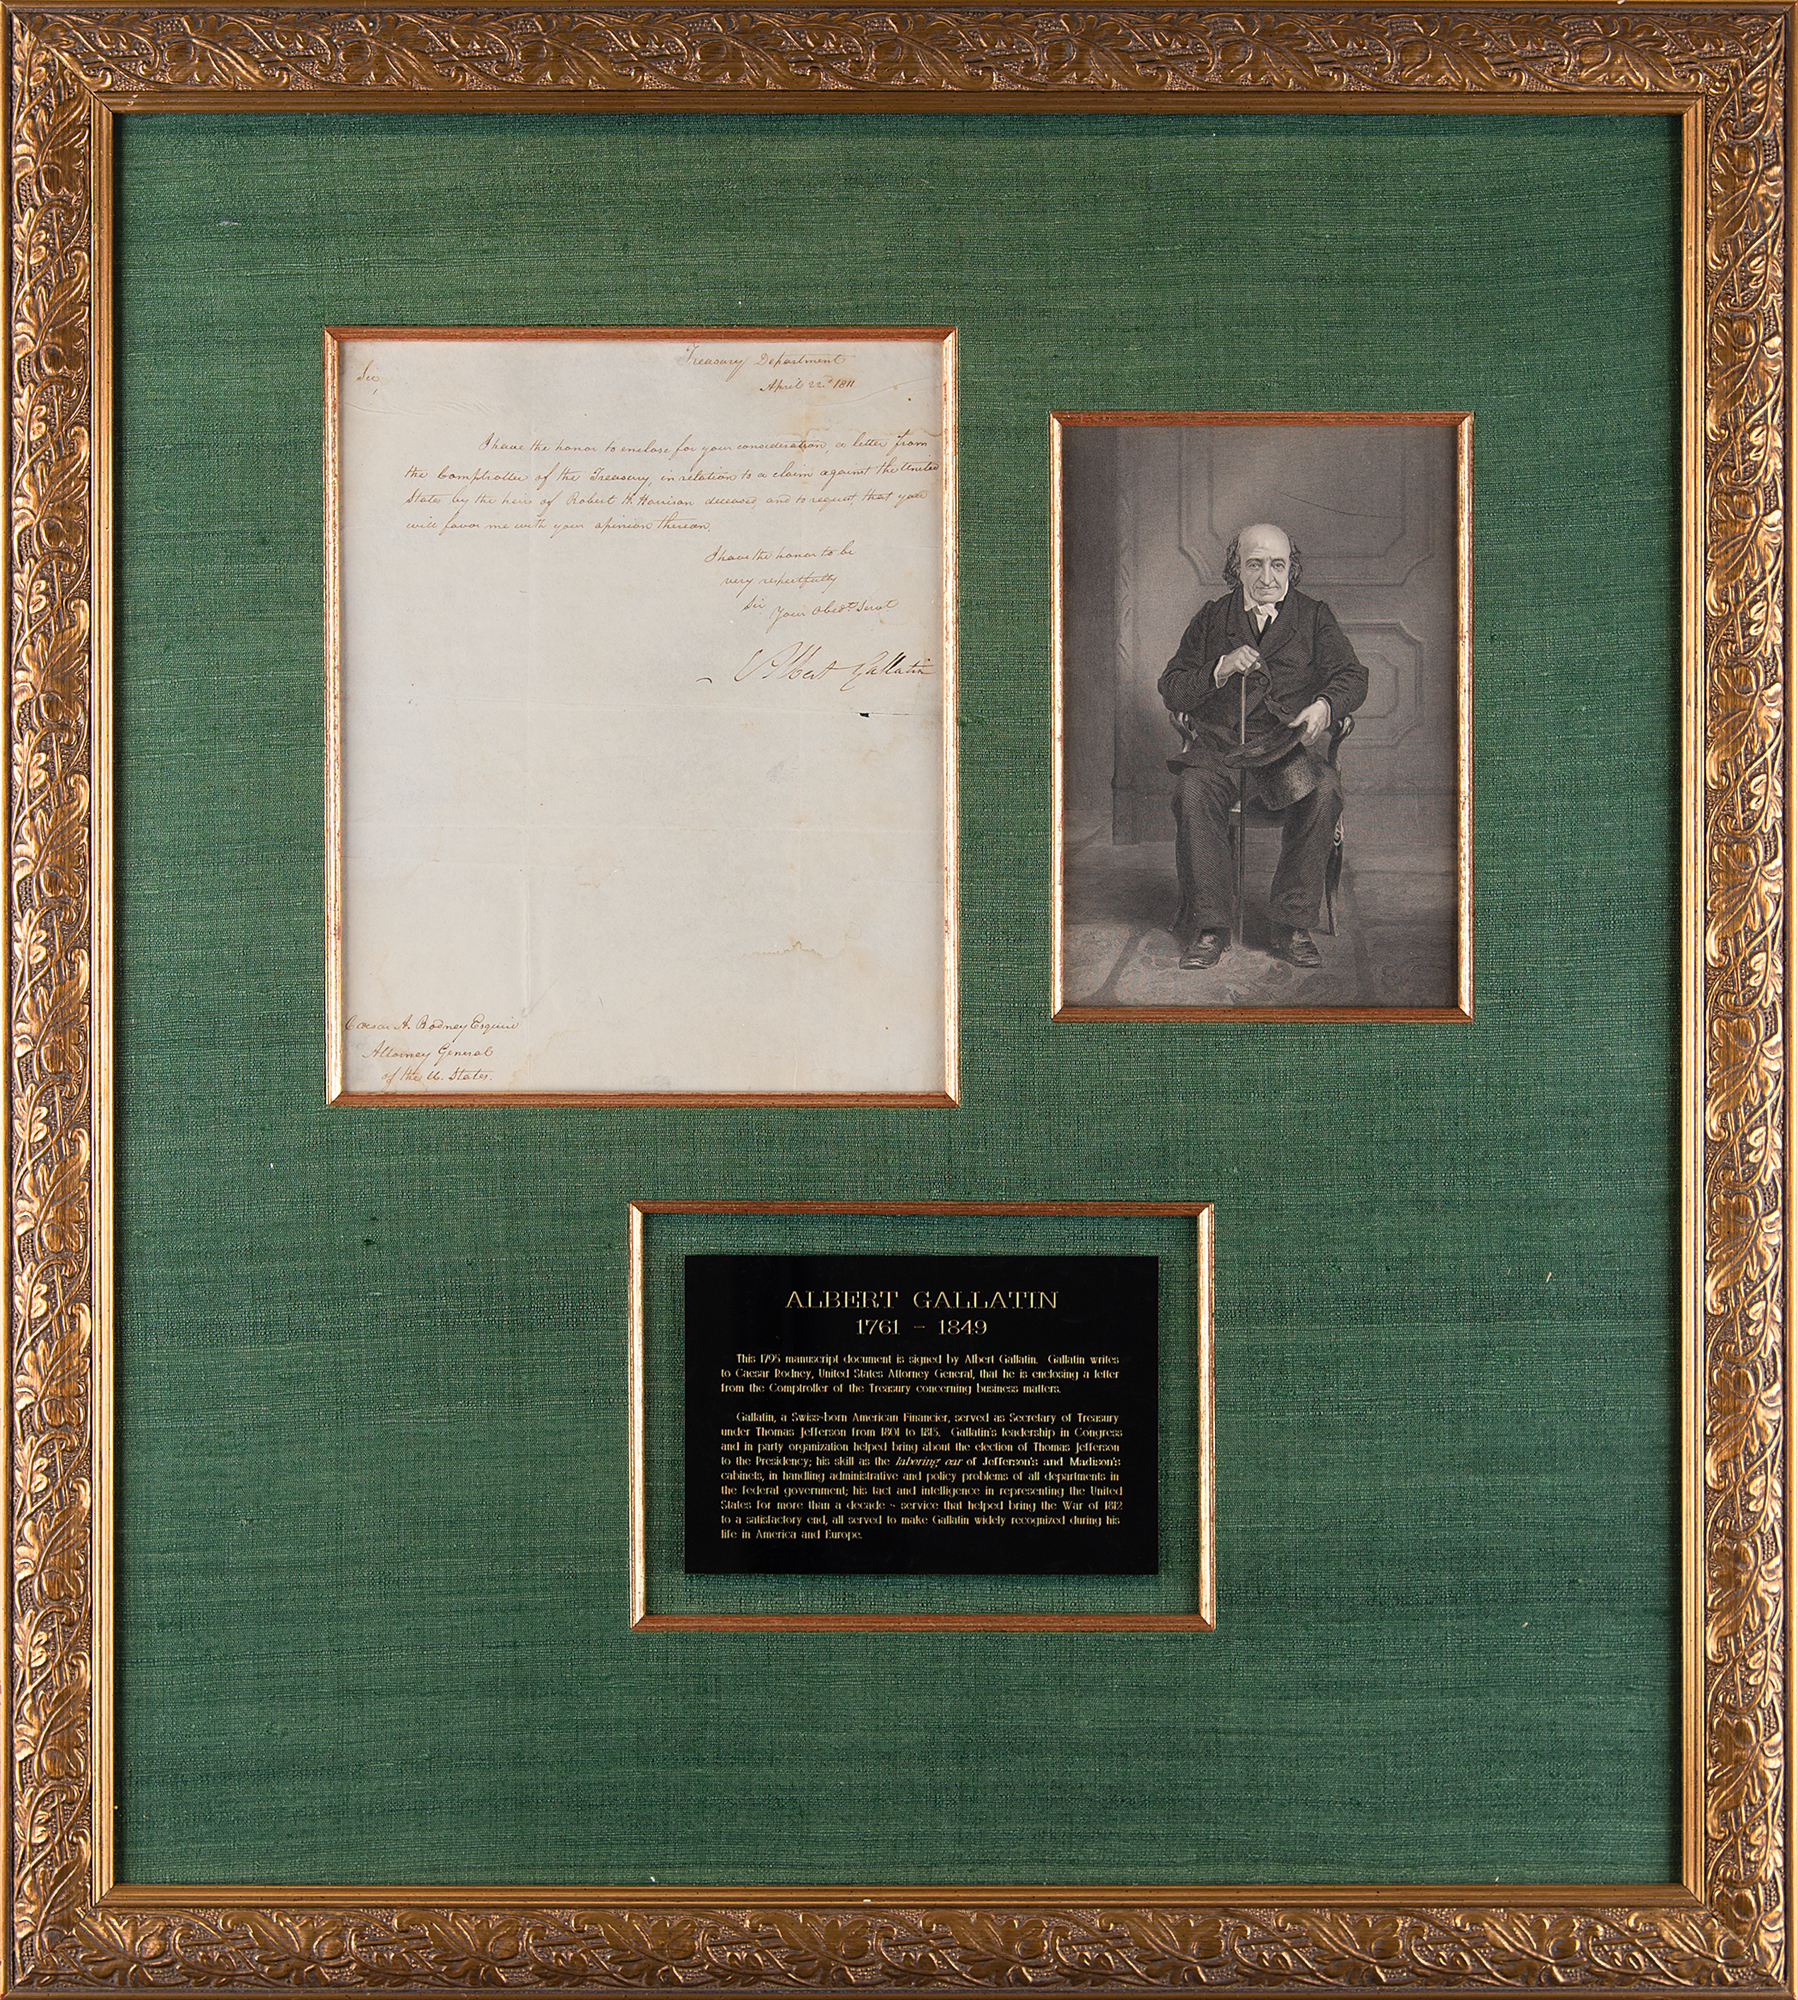 Treasury Department
April 22d 1811
Sir,
I have the honor to enclose for your consideration, a letter from
the Comptroller of the Treasury, in relation to a claim against the United
States by the heir of Robert H. Harrison deceased, and to request that you
will favor me with your opinion thereon.
I have the honor to be
very respectfully
Sir
Your Obedt. Servt
Albert Gallatin
Caesar A. Rodney Esquire
Attorney General
of the U. States.
ALBERT GALLATIN
1761 - 1849
This 1795 manuscript document is signed by Albert Gallatin. Gallatin writes
to Caesar Rodney, United States Attorney General, that he is enclosing a letter
from the Comptroller of the Treasury concerning business matters.
Gallatin, a Swiss-born American Financier, served as Secretary of Treasury
under Thomas Jefferson from 1801 to 1815. Gallatin's leadership in Congress
and in party organization helped bring about the election of Thomas Jefferson
to the Presidency; his skill as the laboring oar of Jefferson's and Madison's
cabinets, in handling administrative and policy problems of all departments in
the federal government; his tact and intelligence in representing the United
States for more than a decade - service that helped bring the War of 1812
to a satisfactory end, all served to make Gallatin widely recognized during his
life in America and Europe.